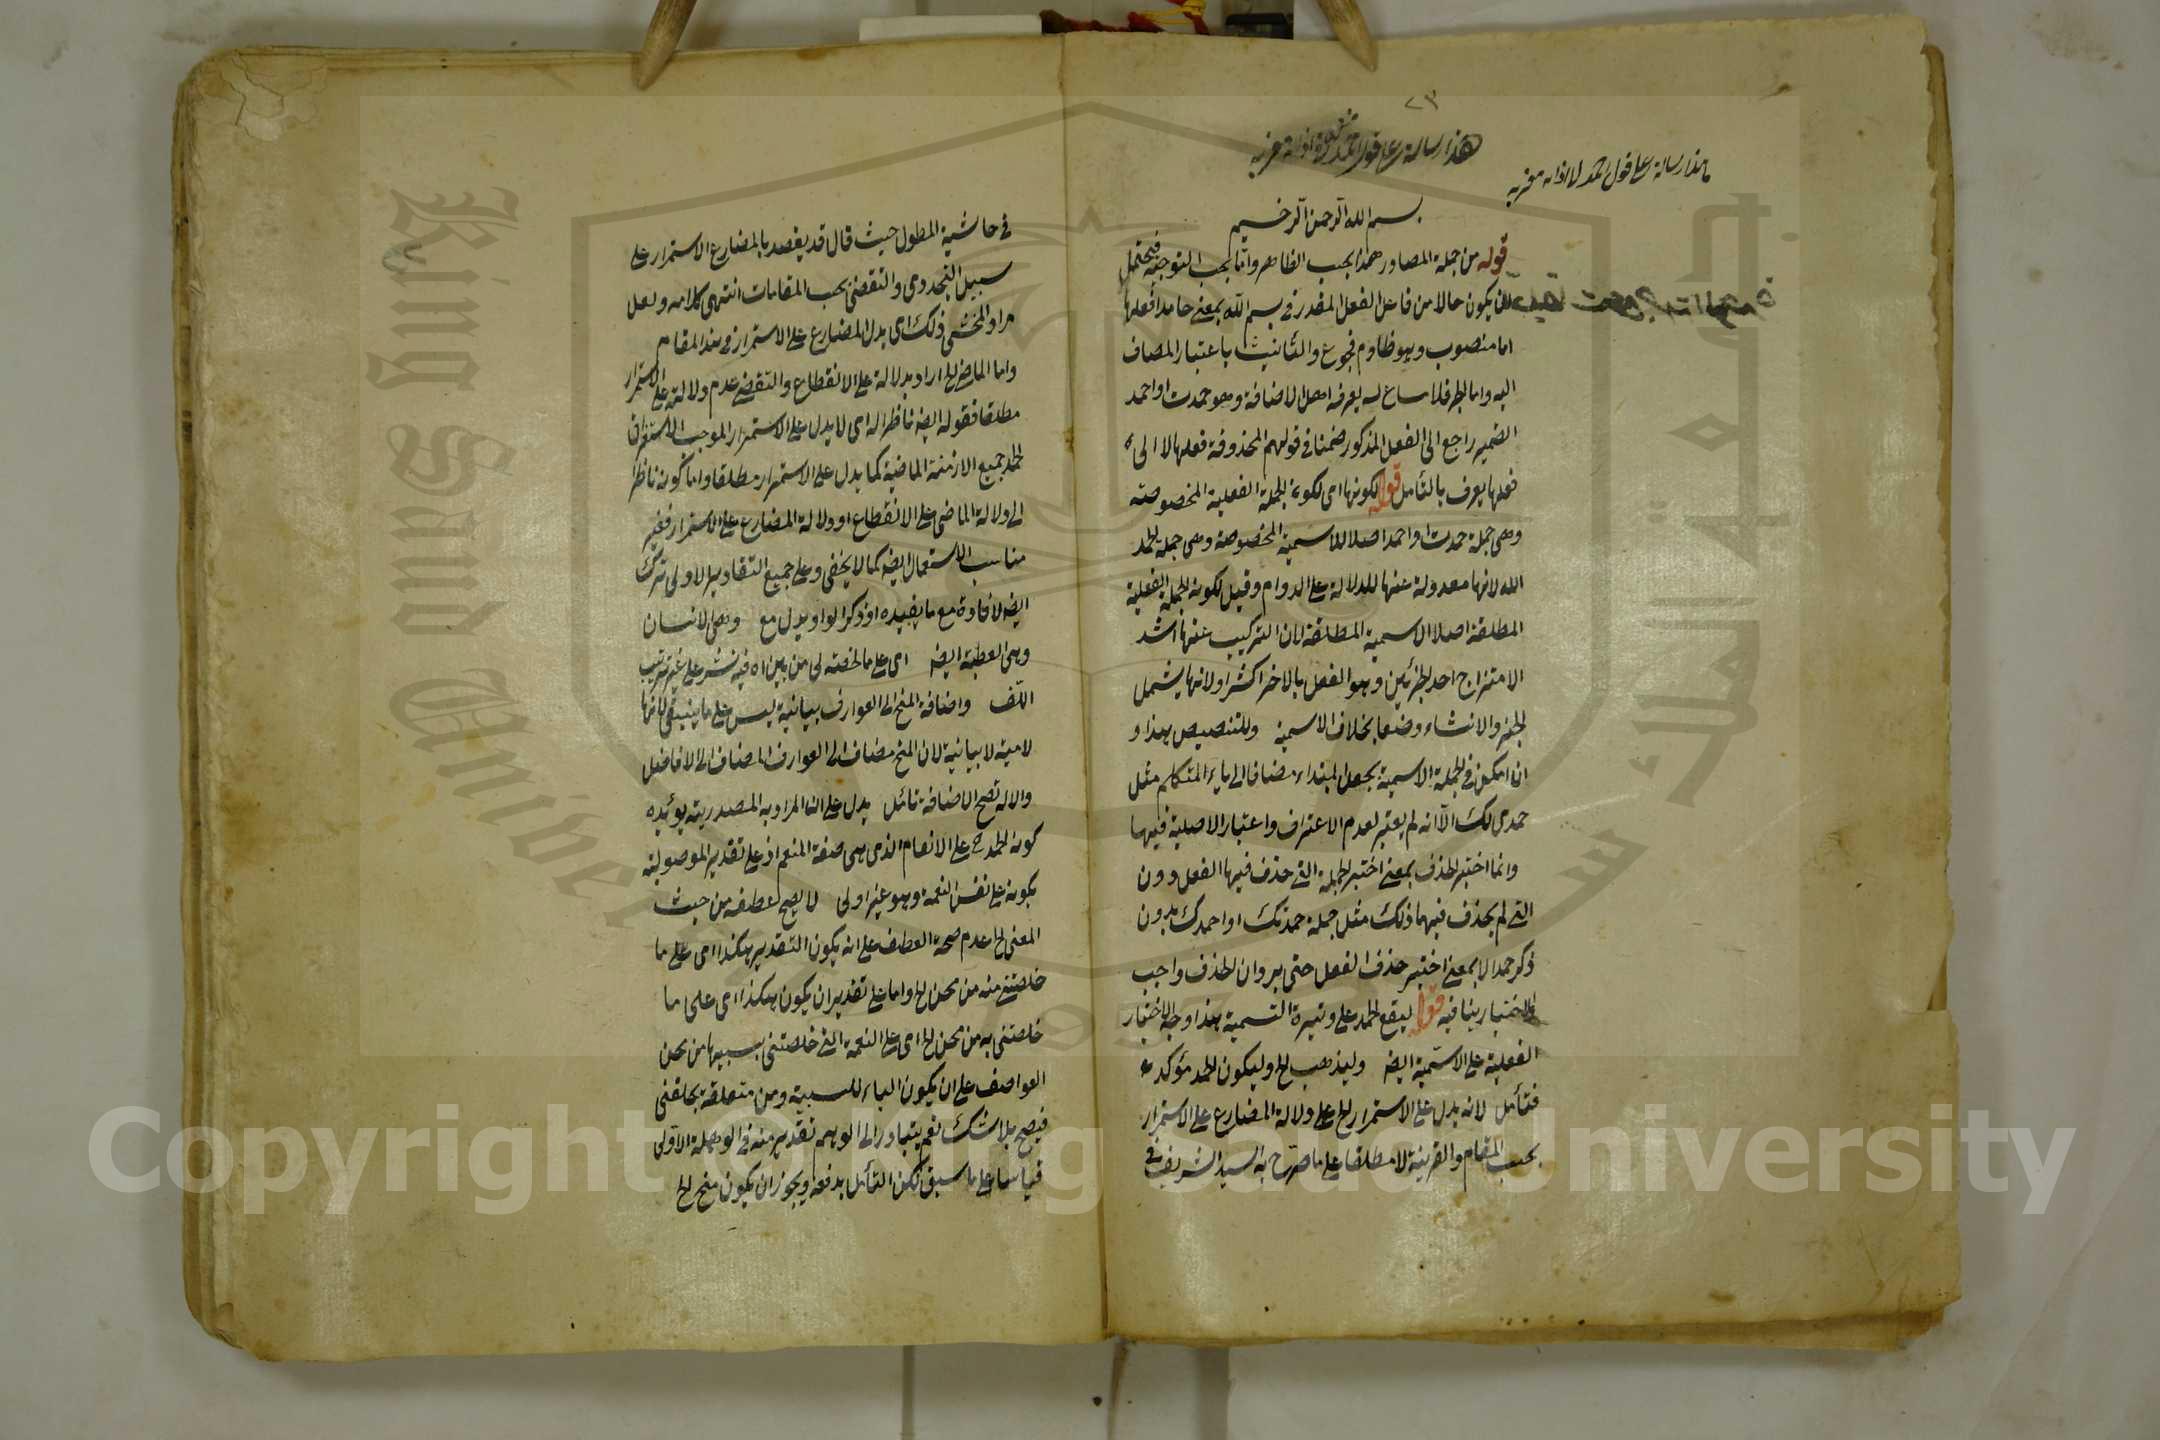 ٢٣
هذا رسالة على قول الحمد
هذا رسالة على قول الحمد
بسم الله الرحمن الرحيم
قوله من جملة المصادر هذا بحسب الظاهر واما بحسب التوجيه فيحتمل
لان يكون حالا من فاعل الفعل المقدر في بسم الله بمعنى حامدا فعلها
اما منصوب وهو ظ او مرفوع والتأنيث باعتبار المضاف
اليه واما الجر فلا مساغ له يعرفه اهل الاضافة وهو حمدت او احمد
الضمير راجع الى الفعل المذكور ضمنا في قولهم المحذوفة فعلها لا الى
فعلها يعرف بالتأمل قوله لكونها اى لكون الجملة الفعلية المخصوصة
وهى جملة حمدت او احمد اصلا للاسمية المخصوصة وهى جملة الحمد
لله لانها معدولة عنها للدلالة على الدوام وقيل لكون الجملة الفعلية
المطلقة اصلا للاسمية المطلقة لان التركيب عنها اشد
الامتزاج احد الجزئين وهو الفعل بالاخر اكثر او لانها يشمل
الخبر والانشاء وضعا بخلاف الاسمية وللتنصيص بهذا و
ان امكن في الجملة الاسمية بجعل المبتداء مضافا الى ياء المتكلم مثل
حمدى لك الا انه لم يعتبر لعدم الاعتراف واعتبار الاصلية فيها
وانما اختير الحذف بمعنى اختير الجملة التى حذف فيها الفعل دون
التى لم يحذف فيها ذلك مثل جملة حمدتك او احمدك بدون
ذكر حمدا لا بمعنى اختير حذف الفعل حتى يرد ان الحذف واجب
والاختيار ينافيه قوله ليقع الحمد على وتيرة التسمية هذا وجه لاختيار
الفعلية على الاسمية ايضا وليذهب الخ وليكون الحمد مؤكد
فتأمل لانه يدل على الاستمرار الخ على دلالة المضارع على الاستمرار
بحسب المقام والقرينة لا مطلقا على ما صرح به السيد الشريف في
في حاشية المطول حيث قال قد يقصد بالمضارع الاستمرار على
سبيل التجددى والتقضى بحسب المقامات انتهى كلامه ولعل
مراد المحشى ذلك اى يدل المضارع على الاستمرار في هذا المقام
واما الماضى الخ اراد بدلالة على الانقطاع والتقضى عدم دلالته على الاستمرار
مطلقا فقوله ايضا ناظر اله اى لا يدل على الاستمرار الموجب لاستغراق
الحمد جميع الازمنة الماضية كما يدل على الاستمرار مطلقا واما كونه ناظرا
الى دلالة الماضى على الانقطاع او دلالة المضارع على الاستمرار فغير
مناسب الاستعمال ايضا كما لا يخفى وعلى جميع التقادير الاولى ترك
ايضا لافادة مع ما يفيده او ذكر الواو بدل مع وهى الانسان
وهى العطية ايضا اى على ما لخصته لى من بين اه فيه نشر على غير ترتيب
اللف واضافة المنح الى العوارف بيانية ليس على ما ينبغى لانها
لامية لا بيانية لان المنح مضاف الى العوارف المضاف الى الافاضل
والاله تصح الاضافة تأمل يدل على ان المراد به المصدرية يؤيده
كون الحمد ح على الانعام الذى هى صفة المنعم اذ على تقدير الموصولية
يكون على نفس النعمة وهو غير اولى لا يصح لعطفه من حيث
المعنى الخ عدم صحة العطف على انه يكون التقدير هكذا اى على ما
خلصتنى منه من محن الخ واما على تقدير ان يكون هكذا اى على ما
خلصتنى به من محن الخ اى على النعمة التى خلصتنى بسببها من محن
العواصف على ان يكون الباء للسببية ومن متعلقة بخلصتنى
فيصح بلا شك نعم يتبادر الى الوهم تقدير منه في الوهلة الاولى
قياسا على ما سبق لكن التأمل يدفعه ويجوز ان يكون منح الخ